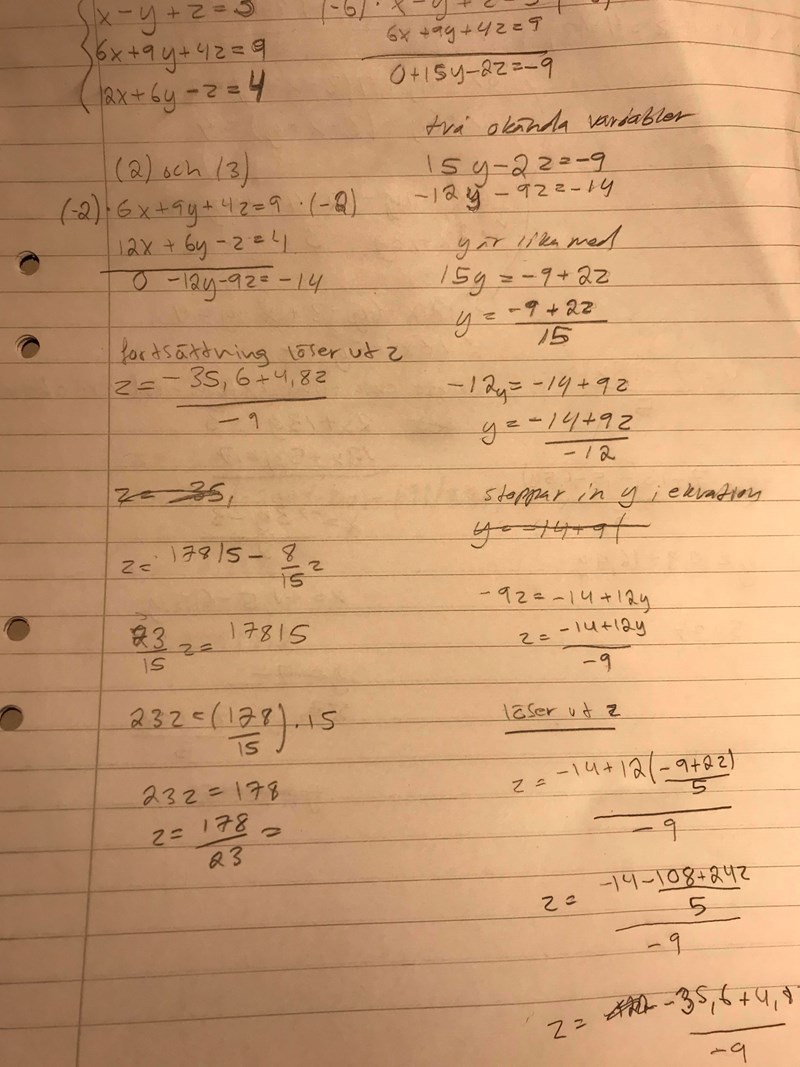 x - y + z = 3
6x+9y+4z=9
12x+6y-z=4
(2) och (3)
(-2)· 6x+9y+4z=9 ·(-2)
12x+6y-z=4
0 -12y-9z=-14
fortsättning löser ut z
z= -35,6+4,8z
-9
z= -35,
z= 178/5 - 8/15 z
23/15 z= 178/5
23z=(178/15)·15
23z=178
z= 178/23 =
(-6)· x-y+z
6x+9y+4z=9
0+15y-2z=-9
två okända variabler
15y-2z=-9
-12y-9z=-14
y är lika med
15y=-9+2z
y= -9+2z
15
-12y=-14+9z
y= -14+9z
-12
stoppar in y i ekvation
y = -14+9
-9z=-14+12y
z= -14+12y
-9
löser ut z
z= -14+12(-9+2z)
5
-9
z= -14-108+24z
5
-9
z= -35,6+4,8
-9